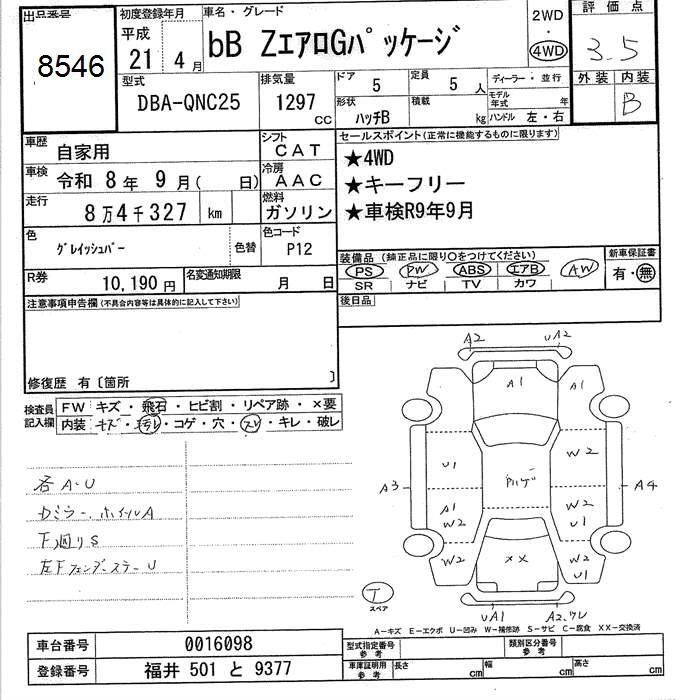 出品番号
8546
初度登録年月
平成
21 4 月
車名・グレード
bB ZエアロGパッケージ
2WD
・
4WD
評価点
3.5
型式
DBA-QNC25
排気量
1297 cc
ドア
5
定員
5 人
ディーラー・並行
形状
ハッチB
積載
kg
モデル年式 年
ハンドル 左・右
外装 内装
B
車歴
自家用
シフト
CAT
車検
令和 8 年 9 月( 日)
冷房
AAC
走行
8 万 4 千 327 km
燃料
ガソリン
色
グレイッシュパー
色替
色コード
P12
R券
10,190 円
名変通知期限
月 日
セールスポイント(正常に機能するものに限ります)
★4WD
★キーフリー
★車検R9年9月
装備品(純正品に限り○をつけてください)
PS PW ABS エアB AW
SR ナビ TV カワ
新車保証書
有・無
後日品
注意事項申告欄(不具合内容等は具体的に記入して下さい)
修復歴 有〔箇所 〕
検査員
記入欄
FW キズ・飛石・ヒビ割・リペア跡・×要
内装 キズ・汚れ・コゲ・穴・スレ・キレ・破レ
各 A・U
ホイルA
下廻りS
左Fフェンダーステー U
A2 UA2
A1 A1
U1 W2
A3 A4
A1 W2
W2 U1
W2 ×× W2
U1
T
スペア
UA1 A2.ワレ
A-キズ E-エクボ U-凹み W-補修跡 S-サビ C-腐食 XX-交換済
車台番号 0016098
登録番号 福井 501 と 9377
型式指定番号
参考
類別区分番号
参考
車庫証明用
参考
長さ cm 幅 cm 高さ cm